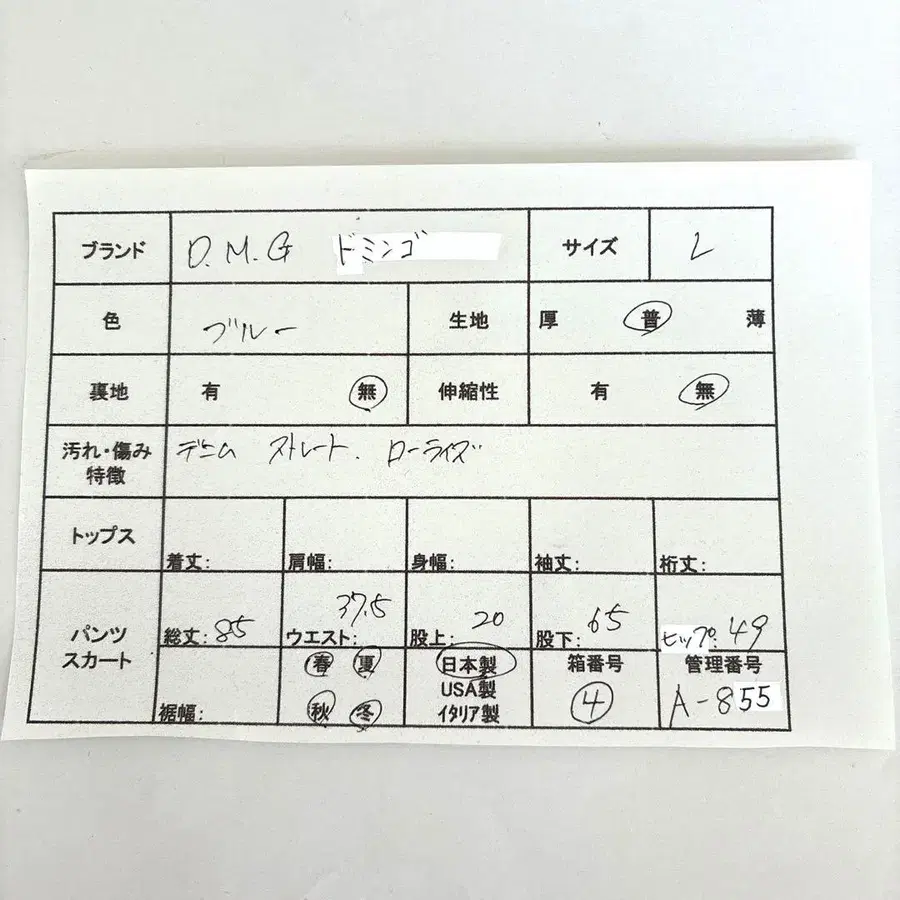 ブランド D.M.G ドミンゴ サイズ L
色 ブルー 生地 厚 普 薄
裏地 有 無 伸縮性 有 無
汚れ・傷み 特徴 デニム ストレート. ローライズ
トップス 着丈: 肩幅: 身幅: 袖丈: 裄丈:
パンツ スカート 総丈:85 ウエスト:37.5 股上:20 股下:65 ヒップ:49
裾幅: 春 夏 秋 冬 日本製 USA製 イタリア製 箱番号 4 管理番号 A-855